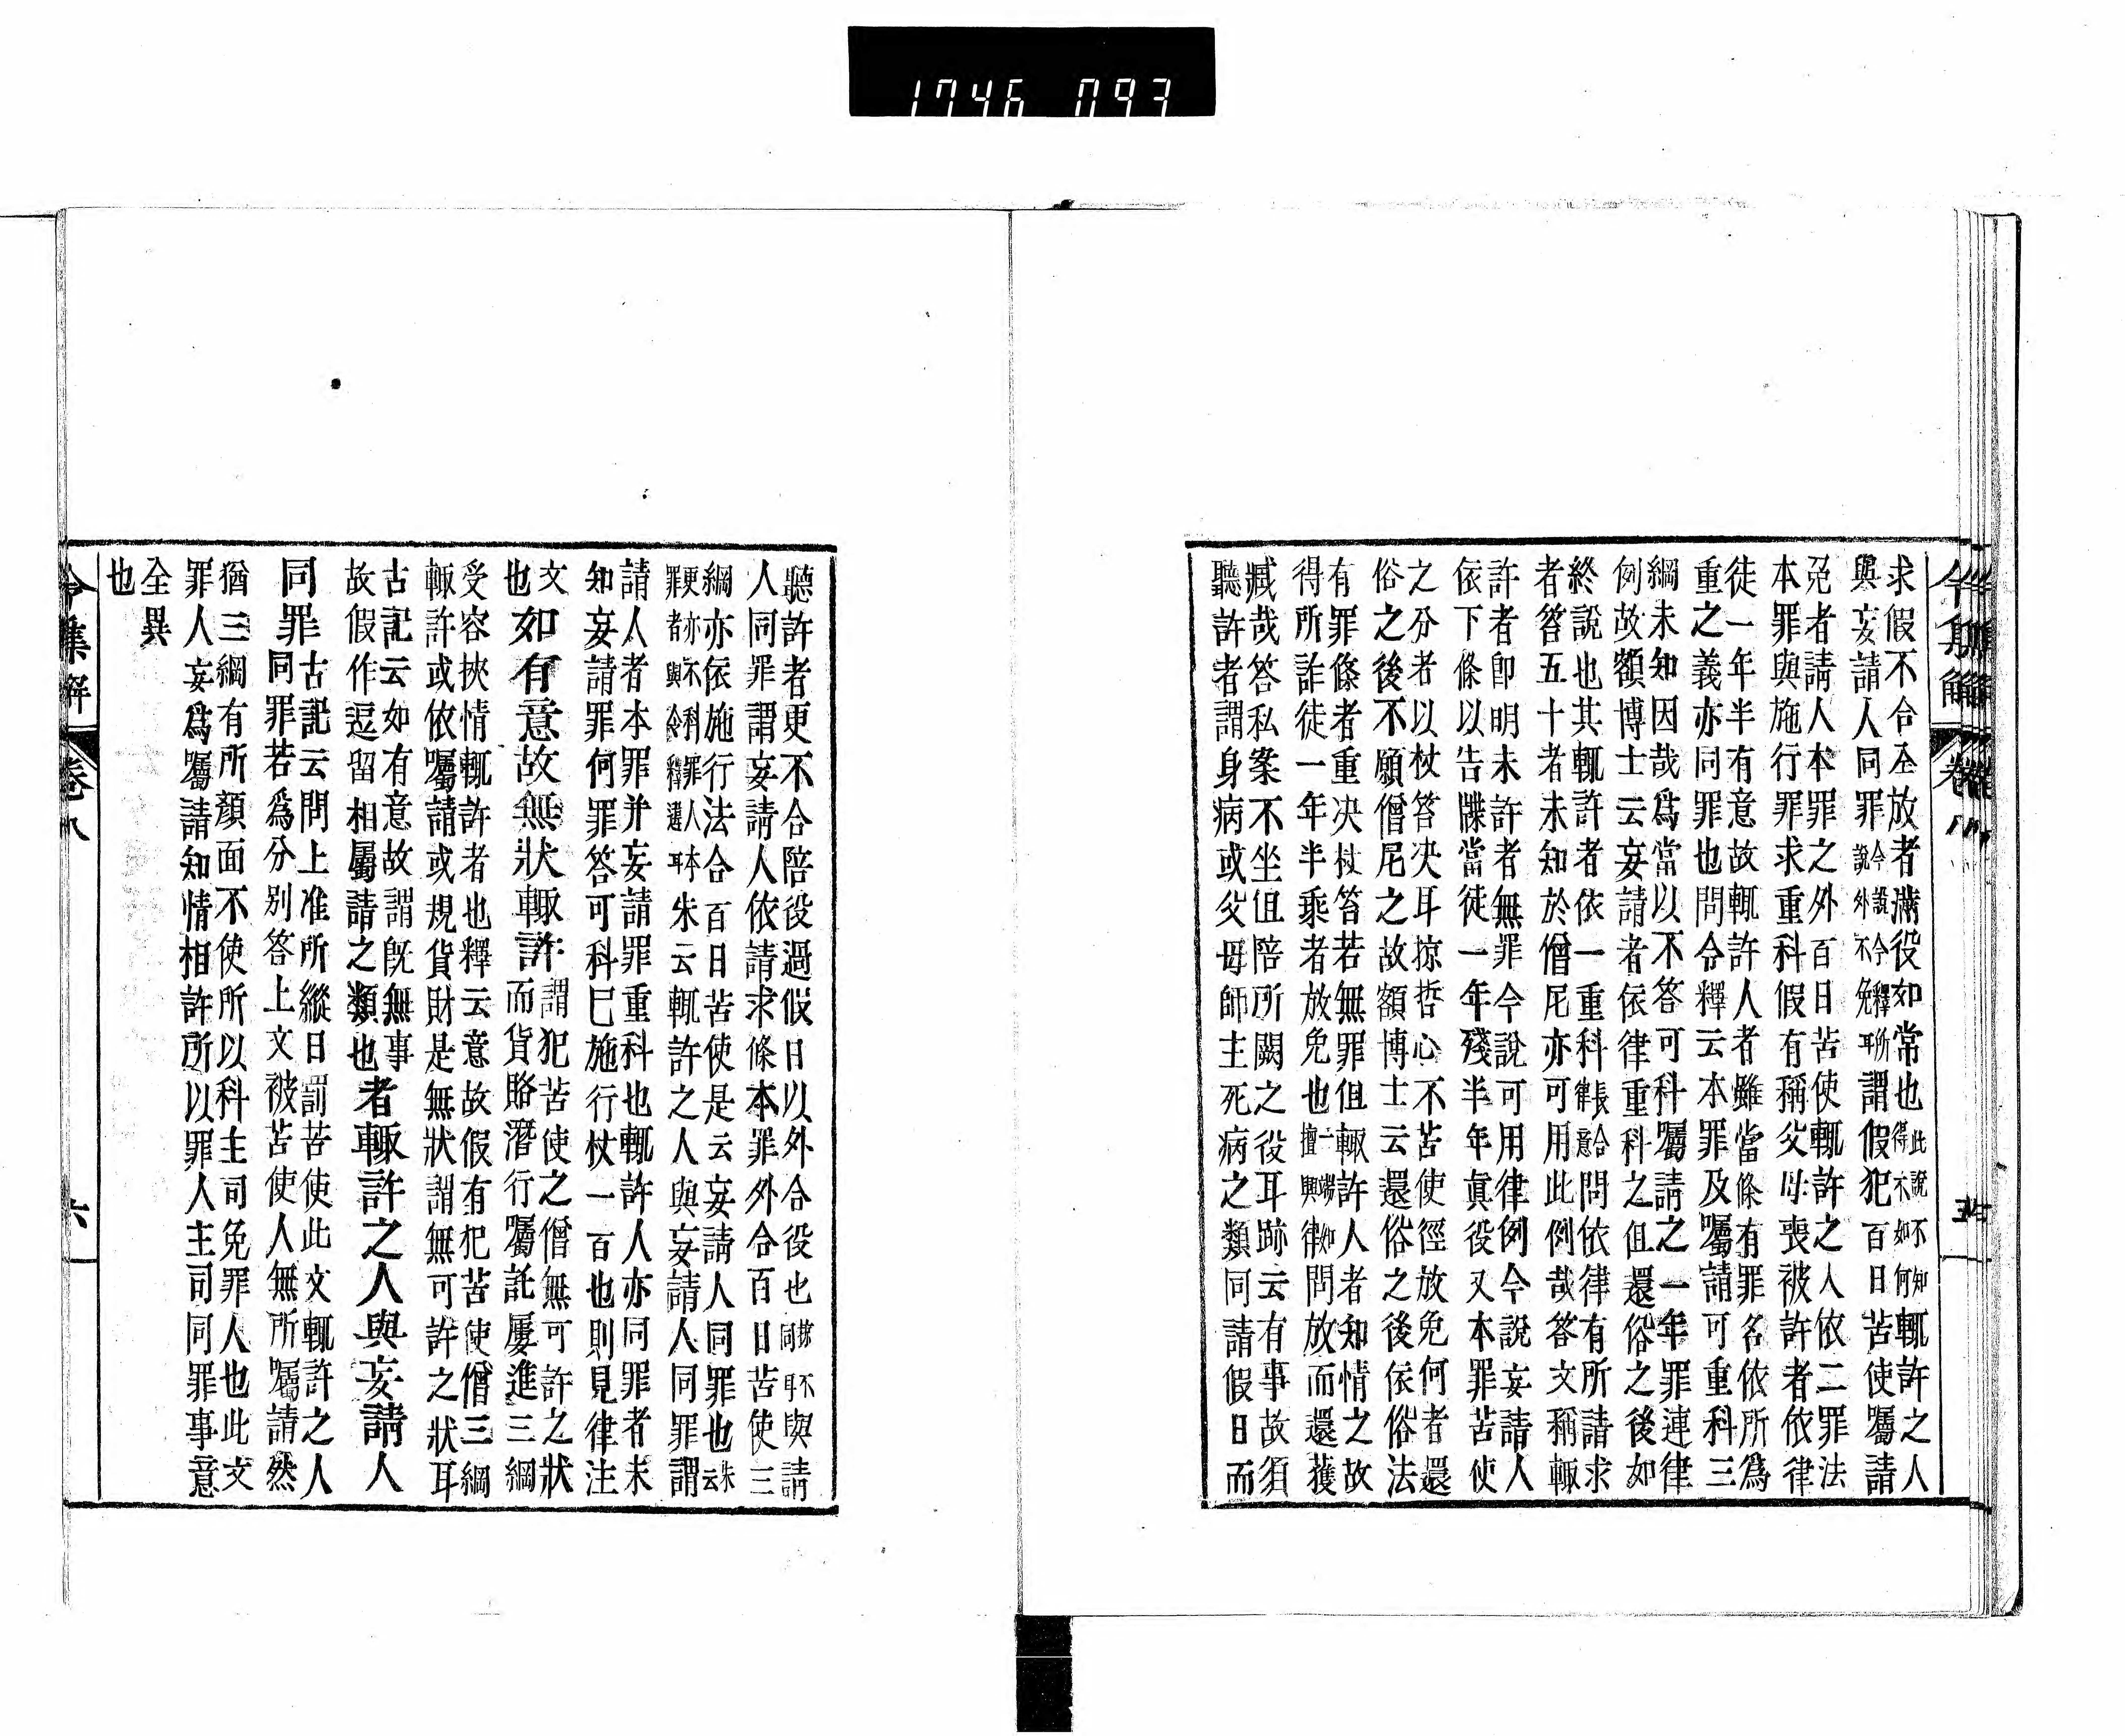 1746 093
求假不合全放者滿役如常也此說不知
得不如何輙許之人
與妄請人同罪今說令釋所
說外不免耳謂假犯百日苦使囑請
免者請人本罪之外百日苦使輙許之人依二罪法
本罪與施行罪求重科假有稱父母喪被許者依律
徒一年半有意故輙許人者雖當條有罪名依所爲
重之義亦同罪也問令釋云本罪及囑請可重科三
綱未知因哉爲當以不答可科囑請之一年罪連律
例故額博士云妄請者依律重科之但還俗之後如
終說也其輙許者依一重科
者答五十者未知於僧尼亦可用此例哉答文稱輙
問依律有所請求
許者卽明未許者無罪今說可用律例今說妄請人
依下條以告牒當徒一年殘半年眞役又本罪苦使
之分者以杖笞决耳掠哲心不苦使徑放免何者還
俗之後不願僧尼之故額博士云還俗之後依俗法
有罪條者重决杖笞若無罪但輙許人者知情之故
得所詐徒一年半乘者放免也
問放而還獲
臧哉答私案不坐但陪所闕之役耳跡云有事故須
聽許者謂身病或父母師主死病之類同請假日而
聽許者更不合陪役過假日以外合役也
與請
人同罪謂妄請人依請求條本罪外合百日苦使三
綱亦依施行法合百日苦使是云妄請人同罪也朱
云
更亦不科罪人本
罪者與令釋違耳朱云輙許之人與妄請人同罪謂
請人者本罪并妄請罪重科也輙許人亦同罪者未
知妄請罪何罪答可科已施行杖一百也則見律注
文
也如有意故無狀輙許謂犯苦使之僧無可許之狀
而貨賂潛行囑託屢進三綱
受容挾情輙許者也釋云意故假有犯苦使僧三綱
輙許或依囑請或規貨財是無狀謂無可許之狀耳
古記云如有意故謂旣無事
故假作逗留相屬請之類也者輙許之人與妄請人
同罪古記云問上准所縱日罰苦使此文輙許之人
同罪若爲分別答上文被苦使人無所囑請然
猶三綱有所顏面不使所以科主司免罪人也此文
罪人妄爲囑請知情相許所以罪人主司同罪事意
全異
也
令集解 卷八 六